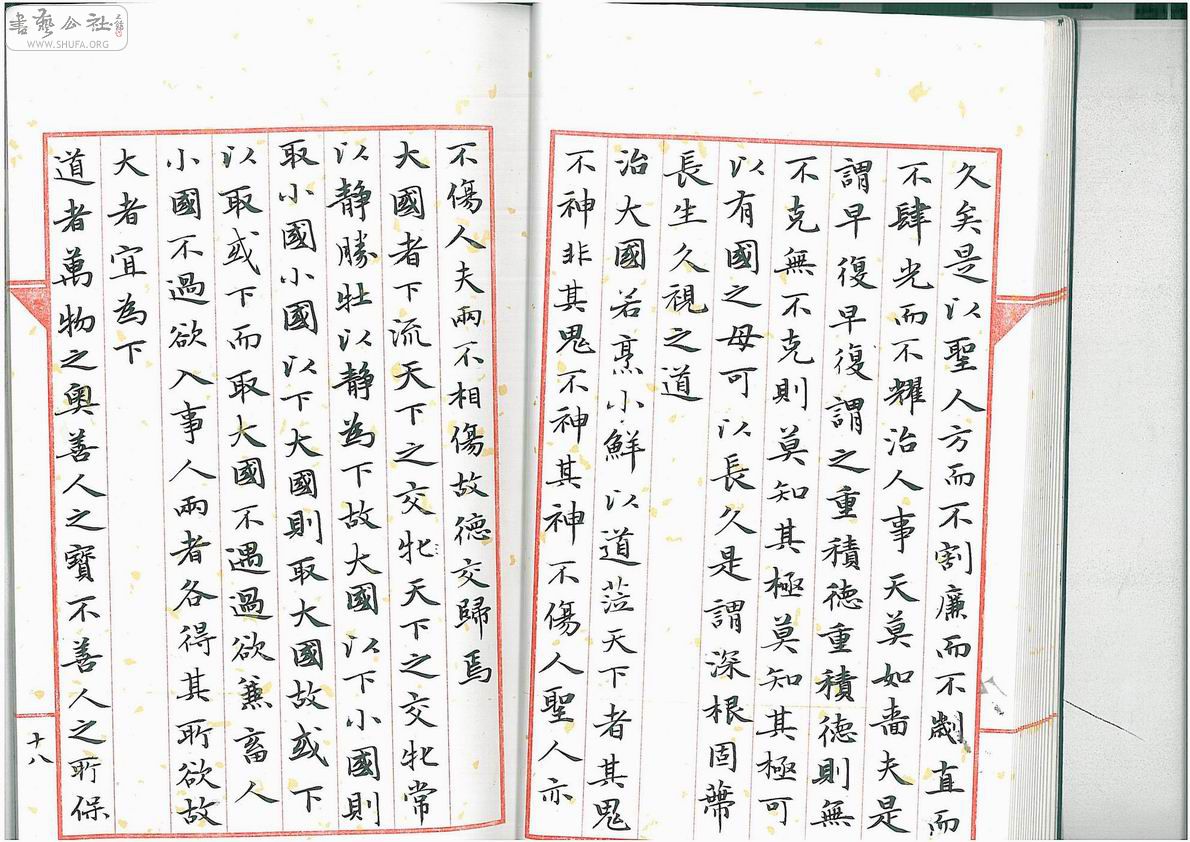 書藝公社
WWW.SHUFA.ORG
久矣是以聖人方而不割廉而不劌直而
不肆光而不耀治人事天莫如嗇夫是
謂早復早復謂之重積德重積德則無
不克無不克則莫知其極莫知其極可
以有國之母可以長久是謂深根固蔕
長生久視之道
治大國若烹小鮮以道莅天下者其鬼
不神非其鬼不神其神不傷人聖人亦
不傷人夫兩不相傷故德交歸焉
大國者下流天下之交牝天下之交牝常
以静勝牡以静為下故大國以下小國則
取小國小國以下大國則取大國故或下
以取或下而取大國不遇過欲兼畜人
小國不過欲入事人兩者各得其所欲故
大者宜為下
道者萬物之奥善人之寶不善人之所保
十八